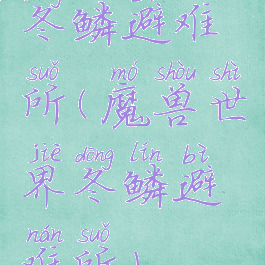 冬鳞避难
suǒ mó shòu shì
所(魔兽世
jiè dōng lín bì
界冬鳞避
nán suǒ
难所)